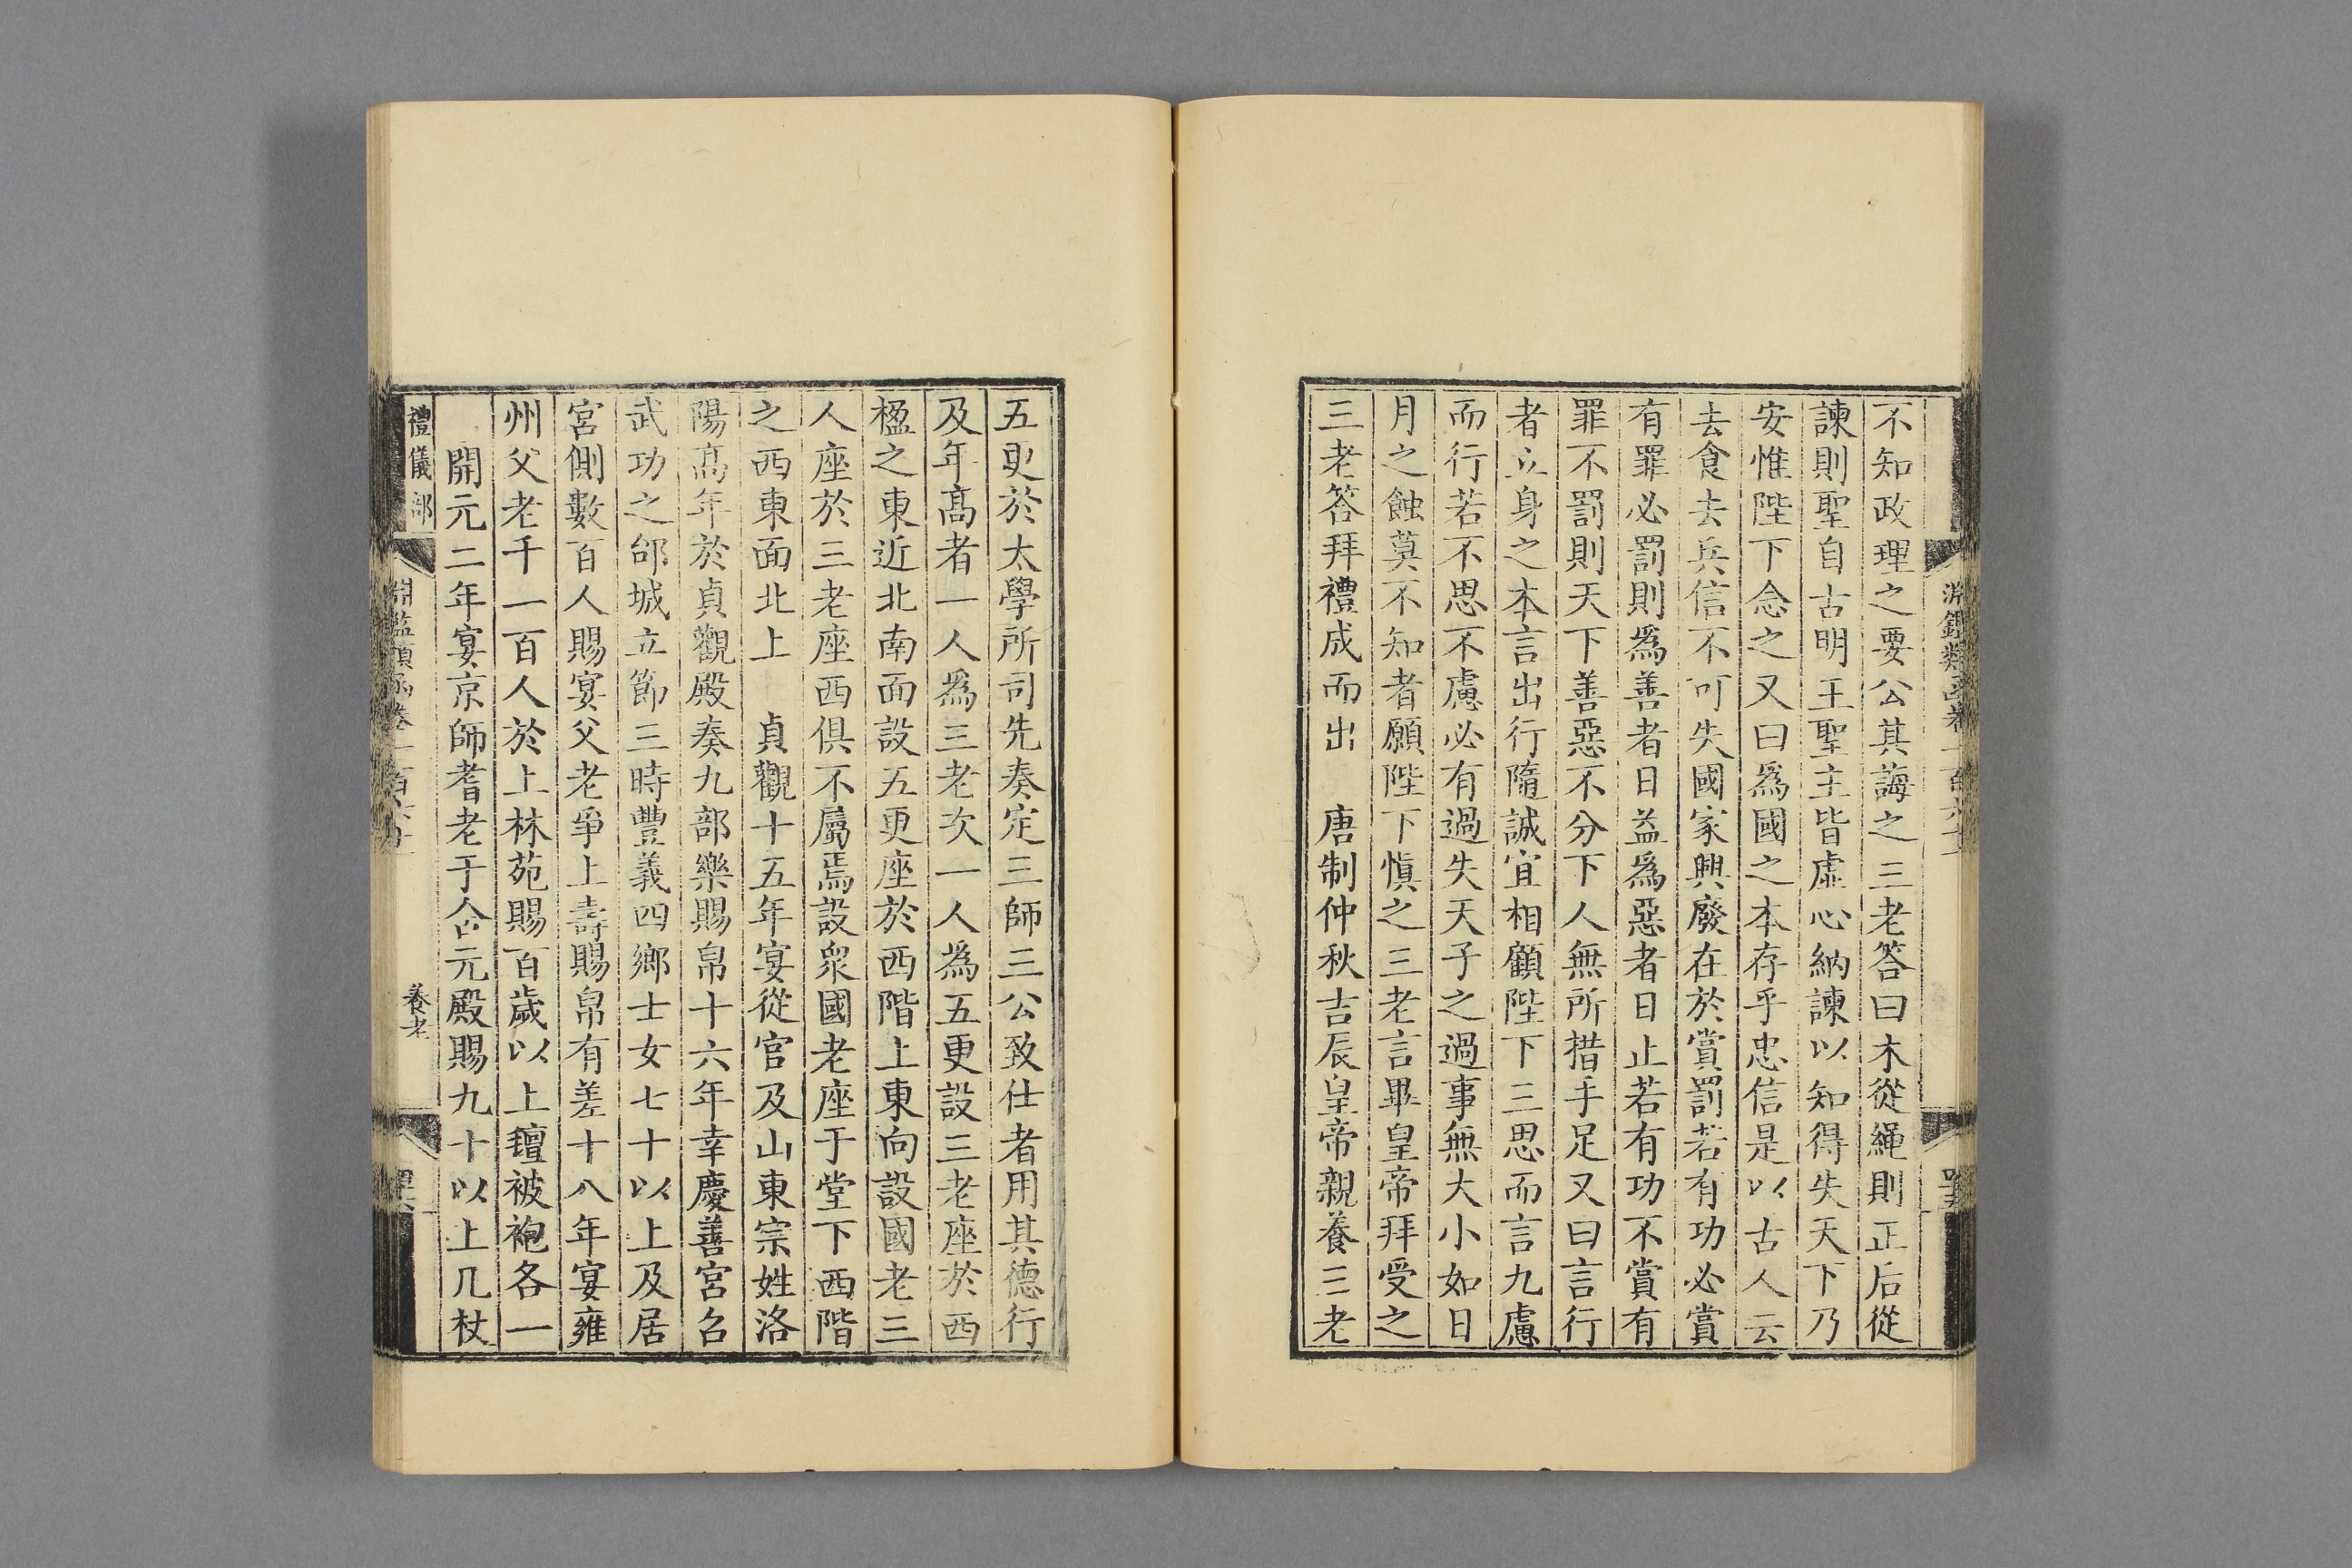 不知政理之要公其誨之三老答曰木從繩則正后從
諫則聖自古明王聖主皆虛心納諫以知得失天下乃
安惟陛下念之又曰爲國之本存乎忠信是以古人云
去食去兵信不可失國家興廢在於賞罰若有功必賞
有罪必罰則爲善者日益爲惡者日止若有功不賞有
罪不罰則天下善惡不分下人無所措手足又曰言行
者立身之本言出行隨誠宜相顧陛下三思而言九慮
而行若不思不慮必有過失天子之過事無大小如日
月之蝕莫不知者願陛下慎之三老言畢皇帝拜受之
三老答拜禮成而出　唐制仲秋吉辰皇帝親養三老
五更於太學所司先奏定三師三公致仕者用其德行
及年高者一人爲三老次一人爲五更設三老座於西
楹之東近北南面設五更座於西階上東向設國老三
人座於三老座西俱不屬焉設衆國老座于堂下西階
之西東面北上　貞觀十五年宴從官及山東宗姓洛
陽高年於貞觀殿奏九部樂賜帛十六年幸慶善宮召
武功之邰城立節三時豐義四鄉士女七十以上及居
宮側數百人賜宴父老爭上壽賜帛有差十八年宴雍
州父老千一百人於上林苑賜百歲以上氊被袍各一
開元二年宴京師耆老于含元殿賜九十以上几杖
禮儀部
養老